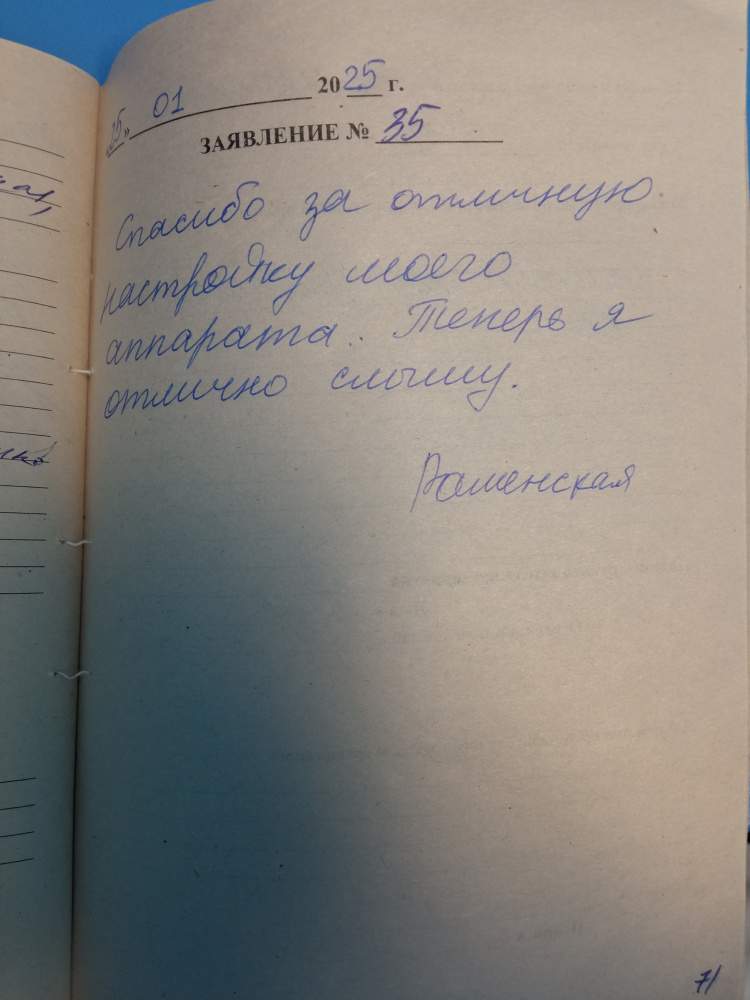 25» 01 2025 г.
ЗАЯВЛЕНИЕ № 35
Спасибо за отличную
настройку моего
аппарата. Теперь я
отлично слышу.
Раменская
71